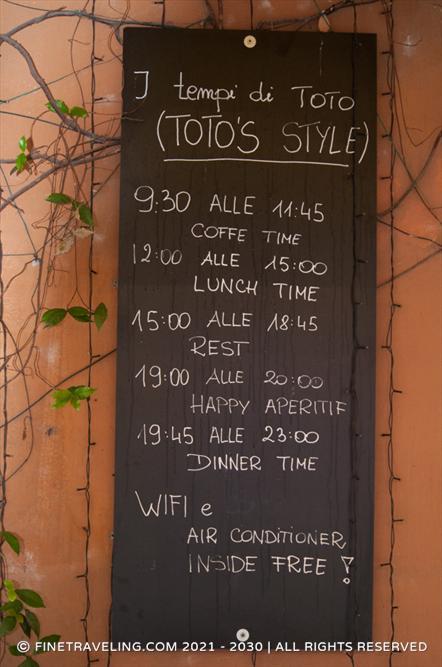 I tempi di TOTO
(TOTO'S STYLE)
9:30 ALLE 11:45
COFFE TIME
12:00 ALLE 15:00
LUNCH TIME
15:00 ALLE 18:45
REST
19:00 ALLE 20:00
HAPPY APERITIF
19:45 ALLE 23:00
DINNER TIME
WIFI e
AIR CONDITIONER
INSIDE FREE !
© FINETRAVELING.COM 2021 - 2030 | ALL RIGHTS RESERVED